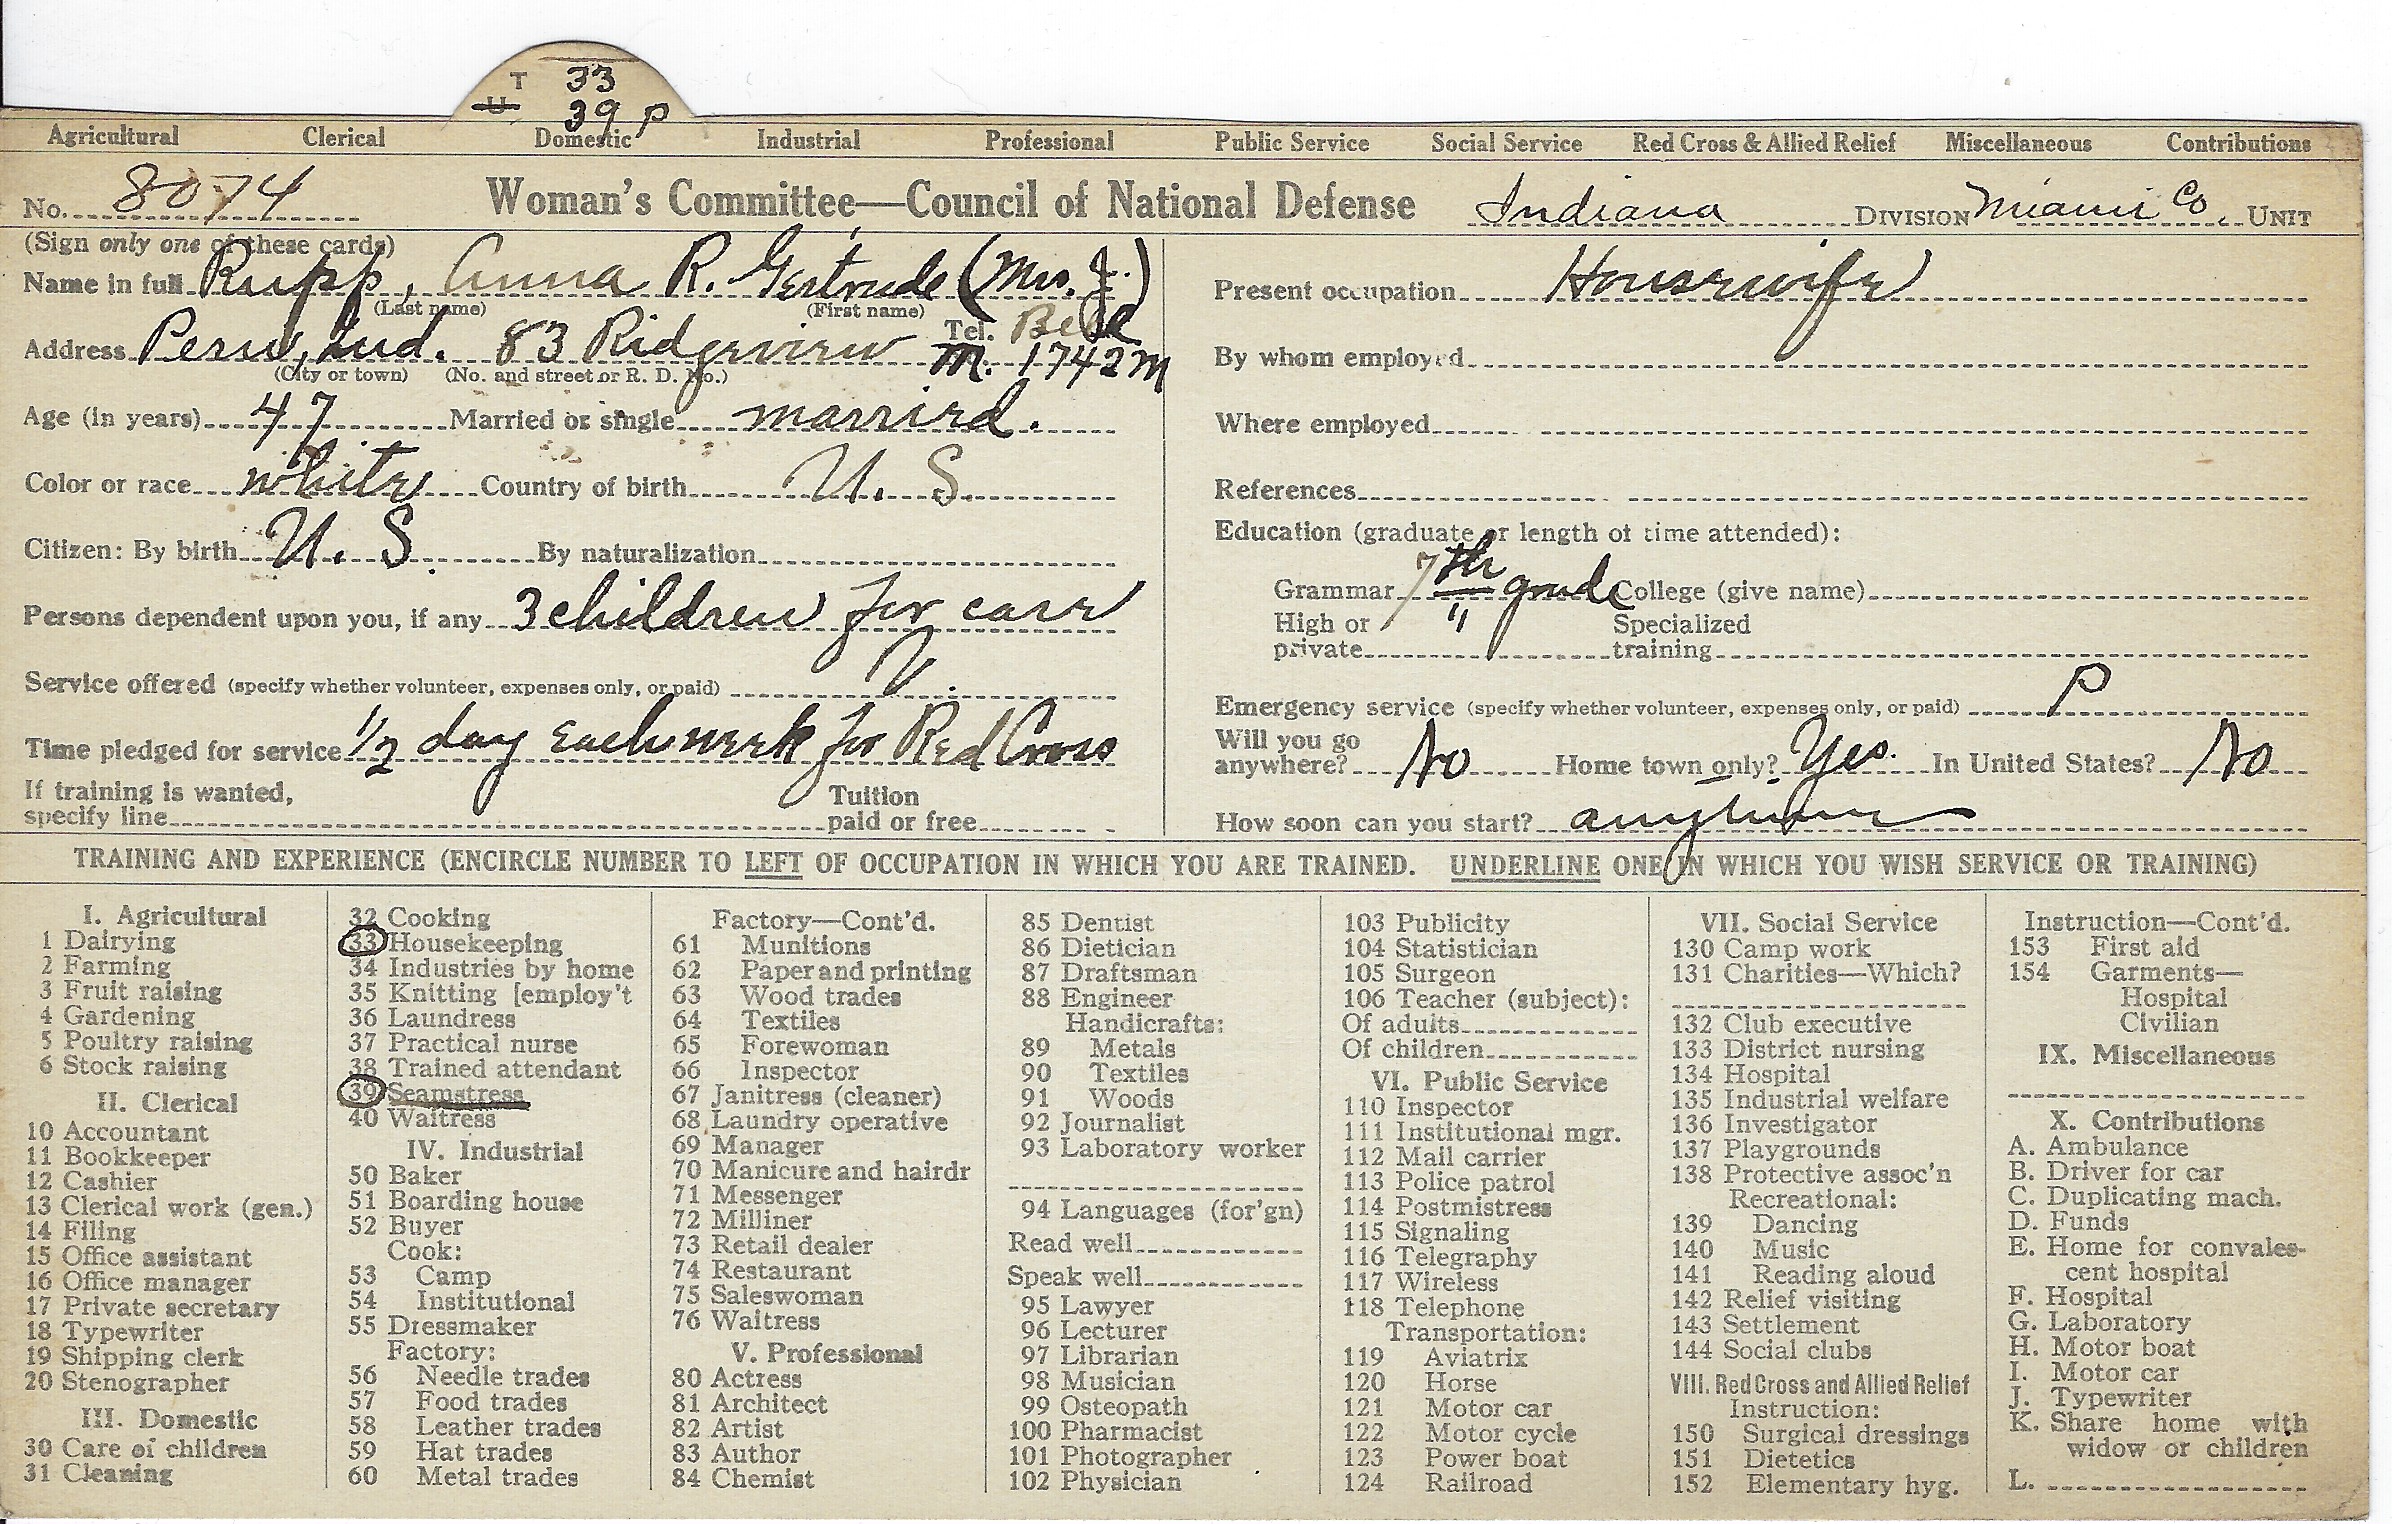 T 33
U 39 P
Agricultural Clerical Domestic Industrial Professional Public Service Social Service Red Cross & Allied Relief Miscellaneous Contributions
No. 8074 Woman's Committee—Council of National Defense Indiana DIVISION Miami Co. UNIT
(Sign only one of these cards)
Name in full Rupp, Anna R. Gertrude (Mrs. J.)
(Last name) (First name)
Address Peru, Ind. 83 Ridgeview Tel. Bell
M. 1742 M
(City or town) (No. and street or R. D. No.)
Age (in years) 47 Married or single married.
Color or race white Country of birth U. S.
Citizen: By birth U. S. By naturalization
Persons dependent upon you, if any 3 children for care
Service offered (specify whether volunteer, expenses only, or paid) V.
Time pledged for service 1/2 day each week for Red Cross
If training is wanted, specify line Tuition paid or free
Present occupation Housewife
By whom employed
Where employed
References
Education (graduate or length of time attended):
Grammar 7th grade College (give name)
High or private " Specialized training
Emergency service (specify whether volunteer, expenses only, or paid) P
Will you go anywhere? No Home town only? Yes. In United States? No
How soon can you start? anytime
TRAINING AND EXPERIENCE (ENCIRCLE NUMBER TO LEFT OF OCCUPATION IN WHICH YOU ARE TRAINED. UNDERLINE ONE IN WHICH YOU WISH SERVICE OR TRAINING)
I. Agricultural
1 Dairying
2 Farming
3 Fruit raising
4 Gardening
5 Poultry raising
6 Stock raising
II. Clerical
10 Accountant
11 Bookkeeper
12 Cashier
13 Clerical work (gen.)
14 Filing
15 Office assistant
16 Office manager
17 Private secretary
18 Typewriter
19 Shipping clerk
20 Stenographer
III. Domestic
30 Care of children
31 Cleaning
32 Cooking
33 Housekeeping
34 Industries by home
35 Knitting [employ't
36 Laundress
37 Practical nurse
38 Trained attendant
39 Seamstress
40 Waitress
IV. Industrial
50 Baker
51 Boarding house
52 Buyer
Cook:
53 Camp
54 Institutional
55 Dressmaker
Factory:
56 Needle trades
57 Food trades
58 Leather trades
59 Hat trades
60 Metal trades
Factory—Cont'd.
61 Munitions
62 Paper and printing
63 Wood trades
64 Textiles
65 Forewoman
66 Inspector
67 Janitress (cleaner)
68 Laundry operative
69 Manager
70 Manicure and hairdr
71 Messenger
72 Milliner
73 Retail dealer
74 Restaurant
75 Saleswoman
76 Waitress
V. Professional
80 Actress
81 Architect
82 Artist
83 Author
84 Chemist
85 Dentist
86 Dietician
87 Draftsman
88 Engineer
Handicrafts:
89 Metals
90 Textiles
91 Woods
92 Journalist
93 Laboratory worker
94 Languages (for'gn)
Read well
Speak well
95 Lawyer
96 Lecturer
97 Librarian
98 Musician
99 Osteopath
100 Pharmacist
101 Photographer
102 Physician
103 Publicity
104 Statistician
105 Surgeon
106 Teacher (subject):
Of adults
Of children
VI. Public Service
110 Inspector
111 Institutional mgr.
112 Mail carrier
113 Police patrol
114 Postmistress
115 Signaling
116 Telegraphy
117 Wireless
118 Telephone
Transportation:
119 Aviatrix
120 Horse
121 Motor car
122 Motor cycle
123 Power boat
124 Railroad
VII. Social Service
130 Camp work
131 Charities—Which?
132 Club executive
133 District nursing
134 Hospital
135 Industrial welfare
136 Investigator
137 Playgrounds
138 Protective assoc'n
Recreational:
139 Dancing
140 Music
141 Reading aloud
142 Relief visiting
143 Settlement
144 Social clubs
VIII. Red Cross and Allied Relief
Instruction:
150 Surgical dressings
151 Dietetics
152 Elementary hyg.
Instruction—Cont'd.
153 First aid
154 Garments—
Hospital
Civilian
IX. Miscellaneous
X. Contributions
A. Ambulance
B. Driver for car
C. Duplicating mach.
D. Funds
E. Home for convales-
cent hospital
F. Hospital
G. Laboratory
H. Motor boat
I. Motor car
J. Typewriter
K. Share home with
widow or children
L.